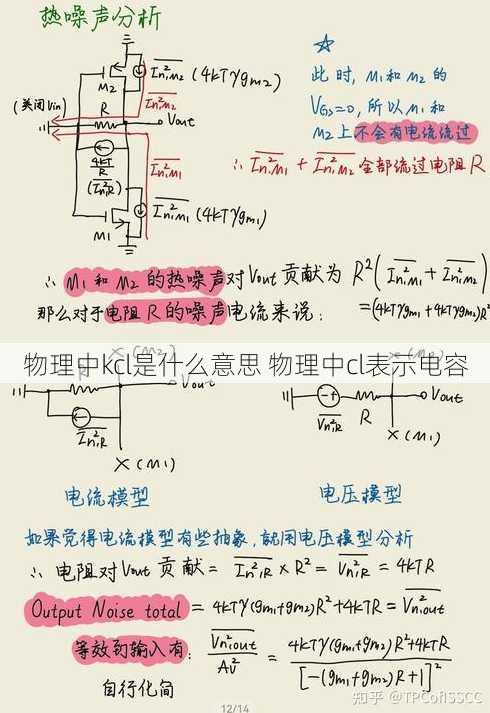 热噪声分析
M2
R
(关闭Vin)
Vout
4kT/R
(I²n,R)
M1
I²n,M2 (4kTγgm2)
I²n,M2
I²n,M1
I²n,M1 (4kTγgm1)
☆
此时, M1和M2的
VGS=0, 所以M1和
M2上不会有电流流过
∴ I²n,M1 + I²n,M2 全部流过电阻R
∴ M1和M2的热噪声对Vout贡献为 R²(I²n,M1 + I²n,M2)
那么对于电阻R的噪声电流来说: =(4kTγgm1+4kTγgm2)R²
物理中kcl是什么意思 物理中cl表示电容
Vout
I²n,R
X (M1)
电流模型
Vout
V²n,R
R
X (M1)
电压模型
如果觉得电流模型有些抽象,就用电压模型分析
∴ 电阻对Vout贡献 = I²n,R × R² = V²n,R = 4kTR
Output Noise total = 4kTγ(gm1+gm2)R²+4kTR = V²n,out
等效到输入有: V²n,out / Av² = 4kTγ(gm1+gm2)R²+4kTR / [-(gm1+gm2)R+1]²
自行化简
12/14
知乎 @TPCofISSCC